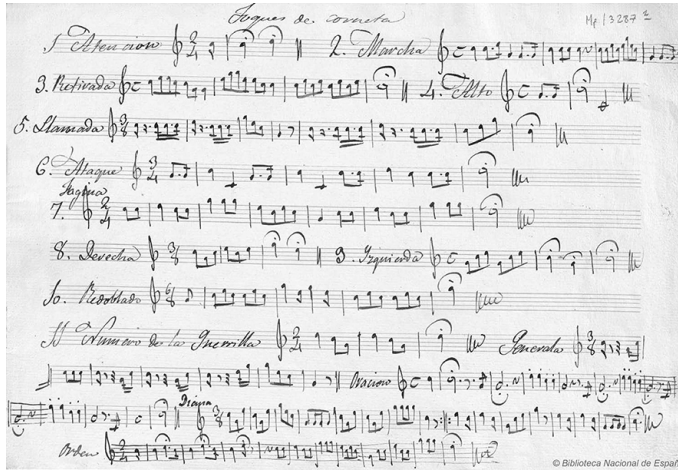 Toques de corneta
Mp/3287
1 Atencion 2. Marcha
3. Retirada 4. Alto
5. Llamada
6. Ataque
Fagina
7.
8. Derecha 9. Izquierda
10. Redoblado
11 Numero de la Guerrilla Generala
Oracion
Diana
Orden
© Biblioteca Nacional de Españ